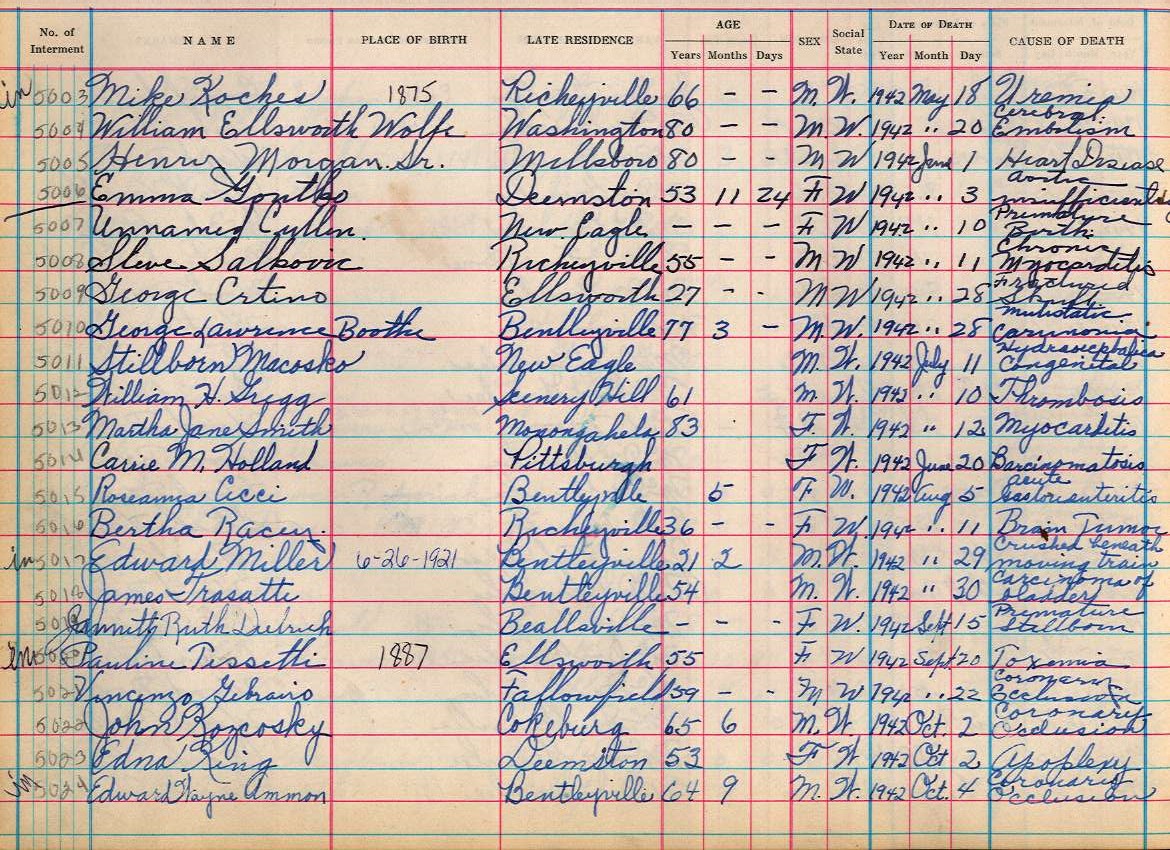 No. of Interment NAME PLACE OF BIRTH LATE RESIDENCE AGE Years Months Days SEX Social State DATE OF DEATH Year Month Day CAUSE OF DEATH
in 5003 Mike Koches 1875 Richeyville 66 - - M. W. 1942 May 18 Uremia
5004 William Ellsworth Wolfe Washington 80 - - M W. 1942 " 20 Cerebral Embolism
5005 Henry Morgan. Sr. Millsboro 80 - - M W 1942 June 1 Heart Disease
5006 Emma Deemston 53 11 24 F W 1942 " 3 aortic
5007 Unnamed Cullen. New Eagle - - - F W 1942 " 10 Premature Birth
5008 Steve Salkovic Richeyville 55 - - M W 1942 " 11 Chronic Myocarditis
5009 George Ellsworth 27 - - M W 1942 " 28 Fractured Skull
5010 George Lawrence Boothe Bentleyville 77 3 - M. W. 1942 " 28
5011 Stillborn Macosko New Eagle M. W. 1942 July 11 Congenital
5012 William H. Gregg Scenery Hill 61 M. W. 1942 " 10 Thrombosis
5013 Martha Jane Smith Monongahela 83 F W. 1942 " 12 Myocarditis
5014 Carrie M. Holland Pittsburgh F W. 1942 June 20
5015 Roseanna Cicci Bentleyville 5 F W. 1942 Aug 5 acute
5016 Bertha Racey. Richeyville 36 - - F W. 1942 " 11 Brain Tumor
in 5017 Edward Miller 6-26-1921 Bentleyville 21 2 M. W. 1942 " 29 Crushed beneath moving train
5018 James Trasatti Bentleyville 54 M. W. 1942 " 30 Carcinoma of bladder
5019 Ruth Beallsville - - - F W. 1942 Sept 15 Premature Stillborn
Pauline Tessetti 1887 Ellsworth 55 F W 1942 Sept 20 Toxemia
5021 Vincenzo Fallowfield 59 - - M W 1942 " 22 Coronary Occlusion
5022 John Rozcosky Cokeburg 65 6 M. W. 1942 Oct. 2 Coronary Occlusion
5023 Edna King Deemston 53 F W 1942 Oct 2 Apoplexy
in 5024 Edward Wayne Ammon Bentleyville 64 9 M. W. 1942 Oct. 4 Coronary Occlusion